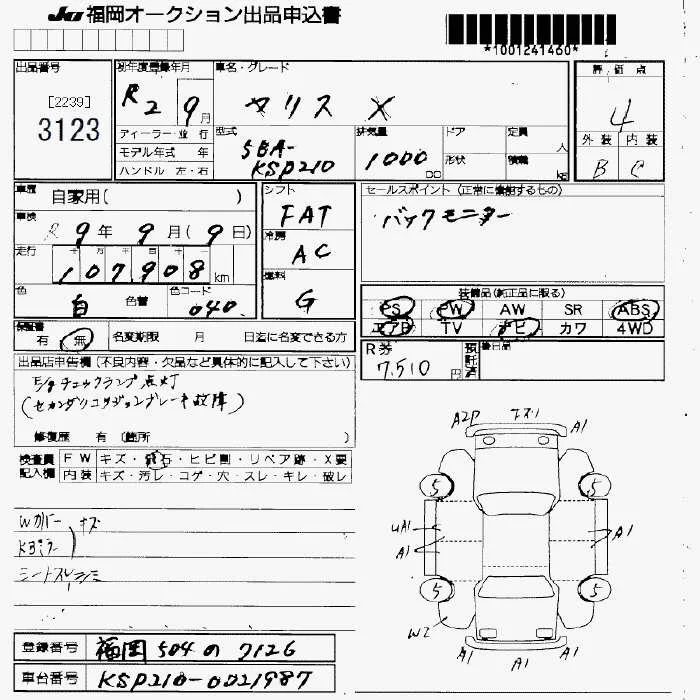 JU 福岡オークション出品申込書
*1001241460*
出品番号 初年度登録年月 車名・グレード 評価点
[2239]
3123
R2 9月 ヤリス X 4
ディーラー・並行 型式 排気量 ドア 定員 人 外装 内装
モデル年式 年 5BA- KSP210 1000 cc 形状 積載 kg B C
ハンドル 左・右
車歴 自家用( ) シフト FAT セールスポイント (正常に作動するもの)
車検 R9年 9月(9日) 冷房 AC バックモニター
走行 十 万 千 百 十 一
107908 km 燃料 G
色 白 色替 色コード 040 装備品(純正品に限る)
PS PW AW SR ABS
エアB TV ナビ カワ 4WD
保証書 有 無 名変期限 月 日迄に名変できる方
R券 7,510円 預託済 後日品
出品店申告欄(不良内容・欠品など具体的に記入して下さい)
E/gチェックランプ点灯
(セカンダリコリジョンブレーキ故障)
修復歴 有 (箇所 )
検査員 記入欄 FW キズ・飛石・ヒビ割・リペア跡・X要
内装 キズ・汚レ・コゲ・穴・スレ・キレ・破レ
Wカバー キズ
Rドミラー
シートスレ シミ
A2P キズ1 A1
A1
5 5
UA1 A1
A1
5 5
W2
A1 A1
登録番号 福岡 504 の 7126
車台番号 KSP210-0021987